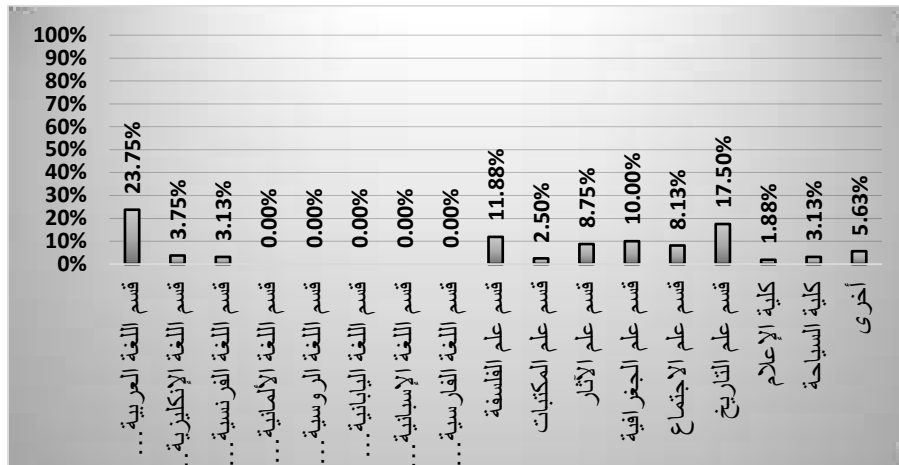 100%
90%
80%
70%
60%
50%
40%
30%
20%
10%
0%
23.75%
3.75%
3.13%
0.00%
0.00%
0.00%
0.00%
0.00%
11.88%
2.50%
8.75%
10.00%
8.13%
17.50%
1.88%
3.13%
5.63%
قسم اللغة العربية...
قسم اللغة الإنكليزية...
قسم اللغة الفرنسية...
قسم اللغة الألمانية...
قسم اللغة الروسية...
قسم اللغة اليابانية...
قسم اللغة الإسبانية...
قسم اللغة الفارسية...
قسم علم الفلسفة
قسم علم المكتبات
قسم علم الآثار
قسم علم الجغرافية
قسم علم الاجتماع
قسم علم التاريخ
كلية الإعلام
كلية السياحة
أخرى